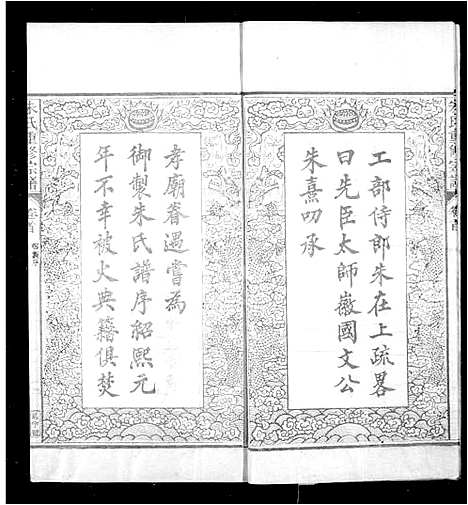 工部侍郎朱在上疏畧
曰先臣太師徽國文公
朱熹叨承
孝廟眷遇嘗為
御製朱氏譜序紹熙元
年不幸被火典籍俱焚
氏重修宗譜
卷首